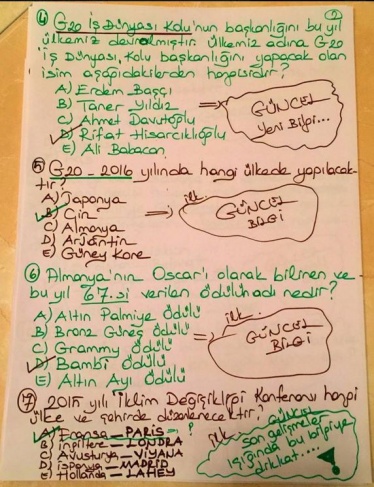 ②
④ G20 İş Dünyası Kolu'nun başkanlığını bu yıl
ülkemiz devralmıştır. Ülkemiz adına G20
İş Dünyası Kolu başkanlığını yapacak olan
isim aşağıdakilerden hangisidir?
A) Erdem Başçı
B) Taner Yıldız
C) Ahmet Davutoğlu
D) Rifat Hisarcıklıoğlu
E) Ali Babacan
⇒ GÜNCEL
Yeni Bilgi...
⑤ G20 - 2016 yılında hangi ülkede yapılacak-
tır?
A) Japonya
B) Çin
C) Almanya
D) Arjantin
E) Güney Kore
⇒ ilk
GÜNCEL
BİLGİ
⑥ Almanya'nın Oscar'ı olarak bilinen ve
bu yıl 67.si verilen ödülün adı nedir?
A) Altın Palmiye Ödülü
B) Bronz Güneş Ödülü
C) Grammy Ödülü
D) Bambi Ödülü
E) Altın Ayı Ödülü
⇒ ilk
GÜNCEL
BİLGİ
⑦ 2015 yılı İklim Değişikliği Konferansı hangi
ülke ve şehirde düzenlenecektir?
A) Fransa - PARİS
B) İngiltere - LONDRA
C) Avusturya - VİYANA
D) İspanya - MADRİD
E) Hollanda - LAHEY
ilk
GÜNCEL
son gelişmeler
ışığında bu bilgiye
dikkat....